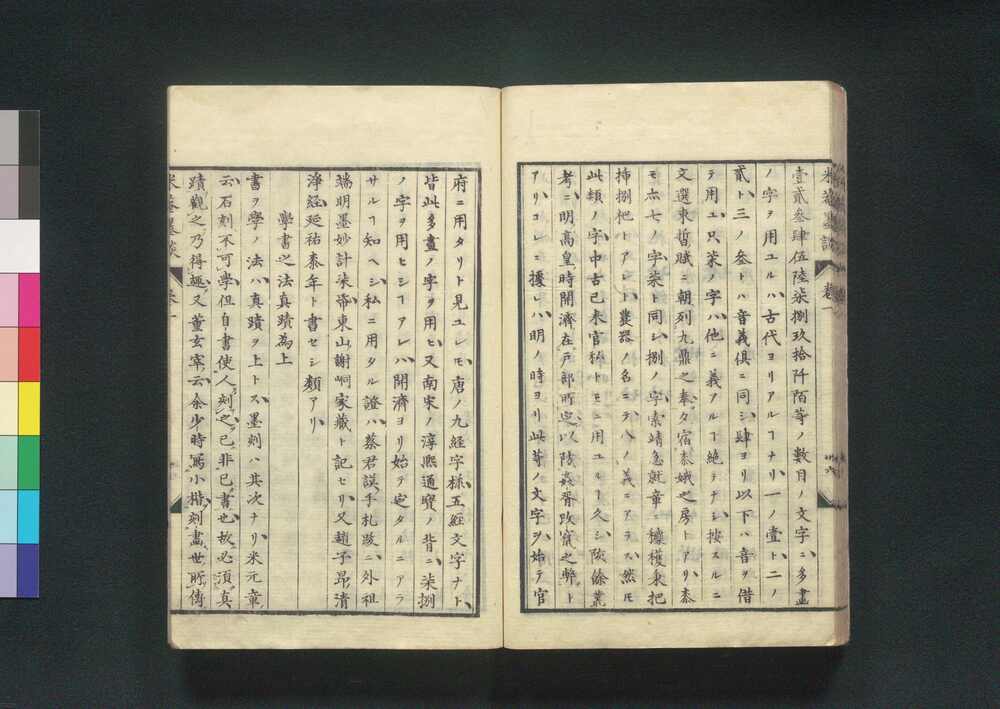 米菴墨談 卷一
壹貳叁肆伍陸柒捌玖拾阡陌等ノ數目ノ文字ニ多畫
ノ字ヲ用ユルハ古代ヨリアルヿナリ一ノ壹ト二ノ
貳ト三ノ叁トハ音義俱ニ同シ肆ヨリ以下ハ音ヲ借
テ用ユ只柒ノ字ハ他ニ義アルヿ絶テナシ按スルニ
文選東晳賦ニ朝列九鼎之奉夕宿桼娥之房トアリ桼
モ古七ノ字柒ト同シ捌ノ字索靖急就章ニ攗穫秉把
揷捌杷トアレトモ農器ノ名ニテ八ノ義ニアラス然モ
此類ノ字中古已来官私トモニ用ユルヿ久シ陔餘叢
考ニ明高皇時開濟在戸部時定以防姦胥改竄之弊ト
アリコレニ據レハ明ノ時ヨリ此等ノ文字ヲ始テ官
府ニ用タリト見ユレモ唐ノ九經字樣五經文字ナト
皆此多畫ノ字ヲ用ヒ又南宋ノ淳熙通寳ノ背ニ柒捌
ノ字ヲ用ヒシヿアレハ開濟ヨリ始テ定タルニアラ
サルヿ知ヘシ私ニ用タル證ハ蔡君謨手札跋ニ外祖
端明墨妙計柒帋東山謝峒家藏ト記セリ又趙子昂清
淨經延祐桼年ト書セシ類アリ
學書之法真蹟為上
書ヲ學ノ法ハ真蹟ヲ上トス墨刻ハ其次ナリ米元章
云石刻不可學但自書使人刻之已非已書也故必須真
蹟觀之乃得趣又董玄宰云余少時寫小楷刻畫世所傳
米菴墨談 卷一